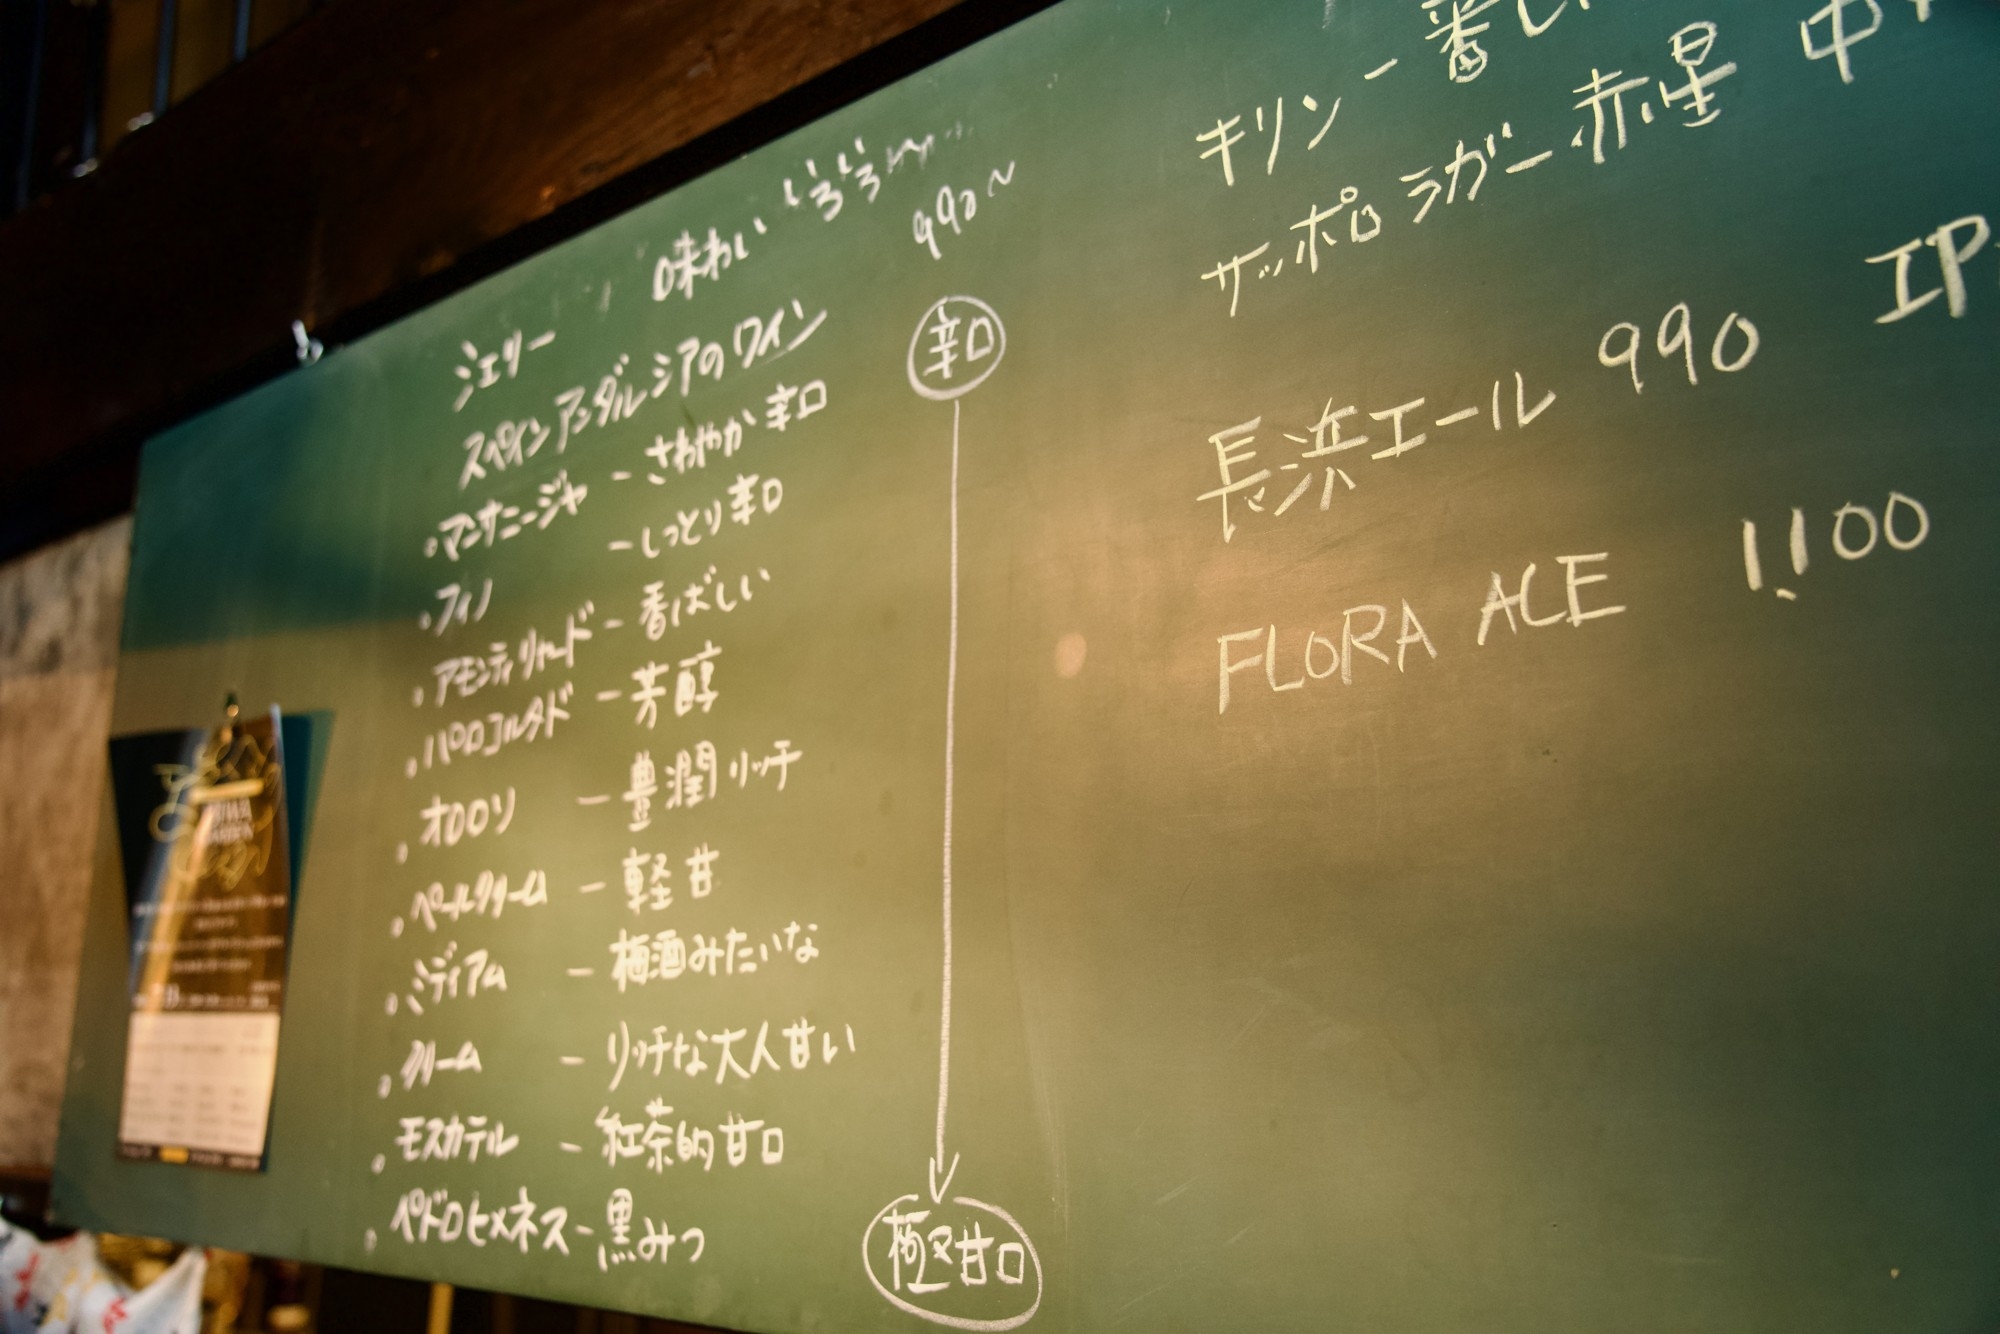 シェリー 味わいいろいろ
990〜
スペインアンダルシアのワイン
辛口
・マンサニージャ - さわやか辛口
・フィノ - しっとり辛口
・アモンティリャード - 香ばしい
・パロコルタド - 芳醇
・オロロソ - 豊潤リッチ
・ペールクリーム - 軽甘
・ミディアム - 梅酒みたいな
・クリーム - リッチな大人甘い
・モスカテル - 紅茶的甘口
・ペドロヒメネス - 黒みつ
極甘口
キリン一番し
サッポロラガー赤星 中
IP
長浜エール 990
FLORA ACE 1,100